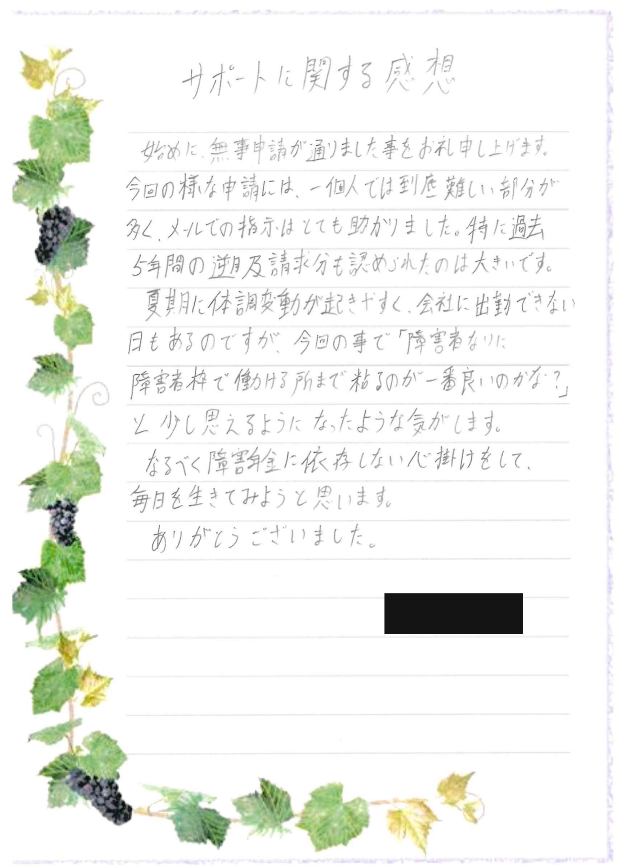 サポートに関する感想
始めに、無事申請が通りました事をお礼申し上げます。
今回の様な申請には、一個人では到底難しい部分が
多く、メールでの指示はとても助かりました。特に過去
5年間の遡及請求分も認められたのは大きいです。
夏期に体調変動が起きやすく、会社に出勤できない
日もあるのですが、今回の事で「障害者なりに
障害者枠で働ける所まで粘るのが一番良いのかな?」
と少し思えるようになったような気がします。
なるべく障害年金に依存しない心掛けをして、
毎日を生きてみようと思います。
ありがとうございました。